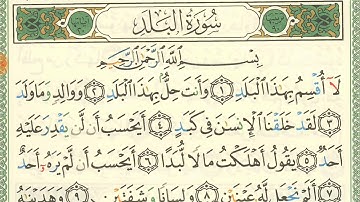 سُورَةُ الْبَلَدِ
بِسْمِ اللَّهِ الرَّحْمَٰنِ الرَّحِيمِ
لَا أُقْسِمُ بِهَٰذَا الْبَلَدِ ١ وَأَنتَ حِلٌّ بِهَٰذَا الْبَلَدِ ٢ وَوَالِدٍ وَمَا وَلَدَ
٣ لَقَدْ خَلَقْنَا الْإِنسَانَ فِي كَبَدٍ ٤ أَيَحْسَبُ أَن لَّن يَقْدِرَ عَلَيْهِ
أَحَدٌ ٥ يَقُولُ أَهْلَكْتُ مَالًا لُّبَدًا ٦ أَيَحْسَبُ أَن لَّمْ يَرَهُ أَحَدٌ
٧ أَلَمْ نَجْعَل لَّهُ عَيْنَيْنِ ٨ وَلِسَانًا وَشَفَتَيْنِ ٩ وَهَدَيْنَاهُ